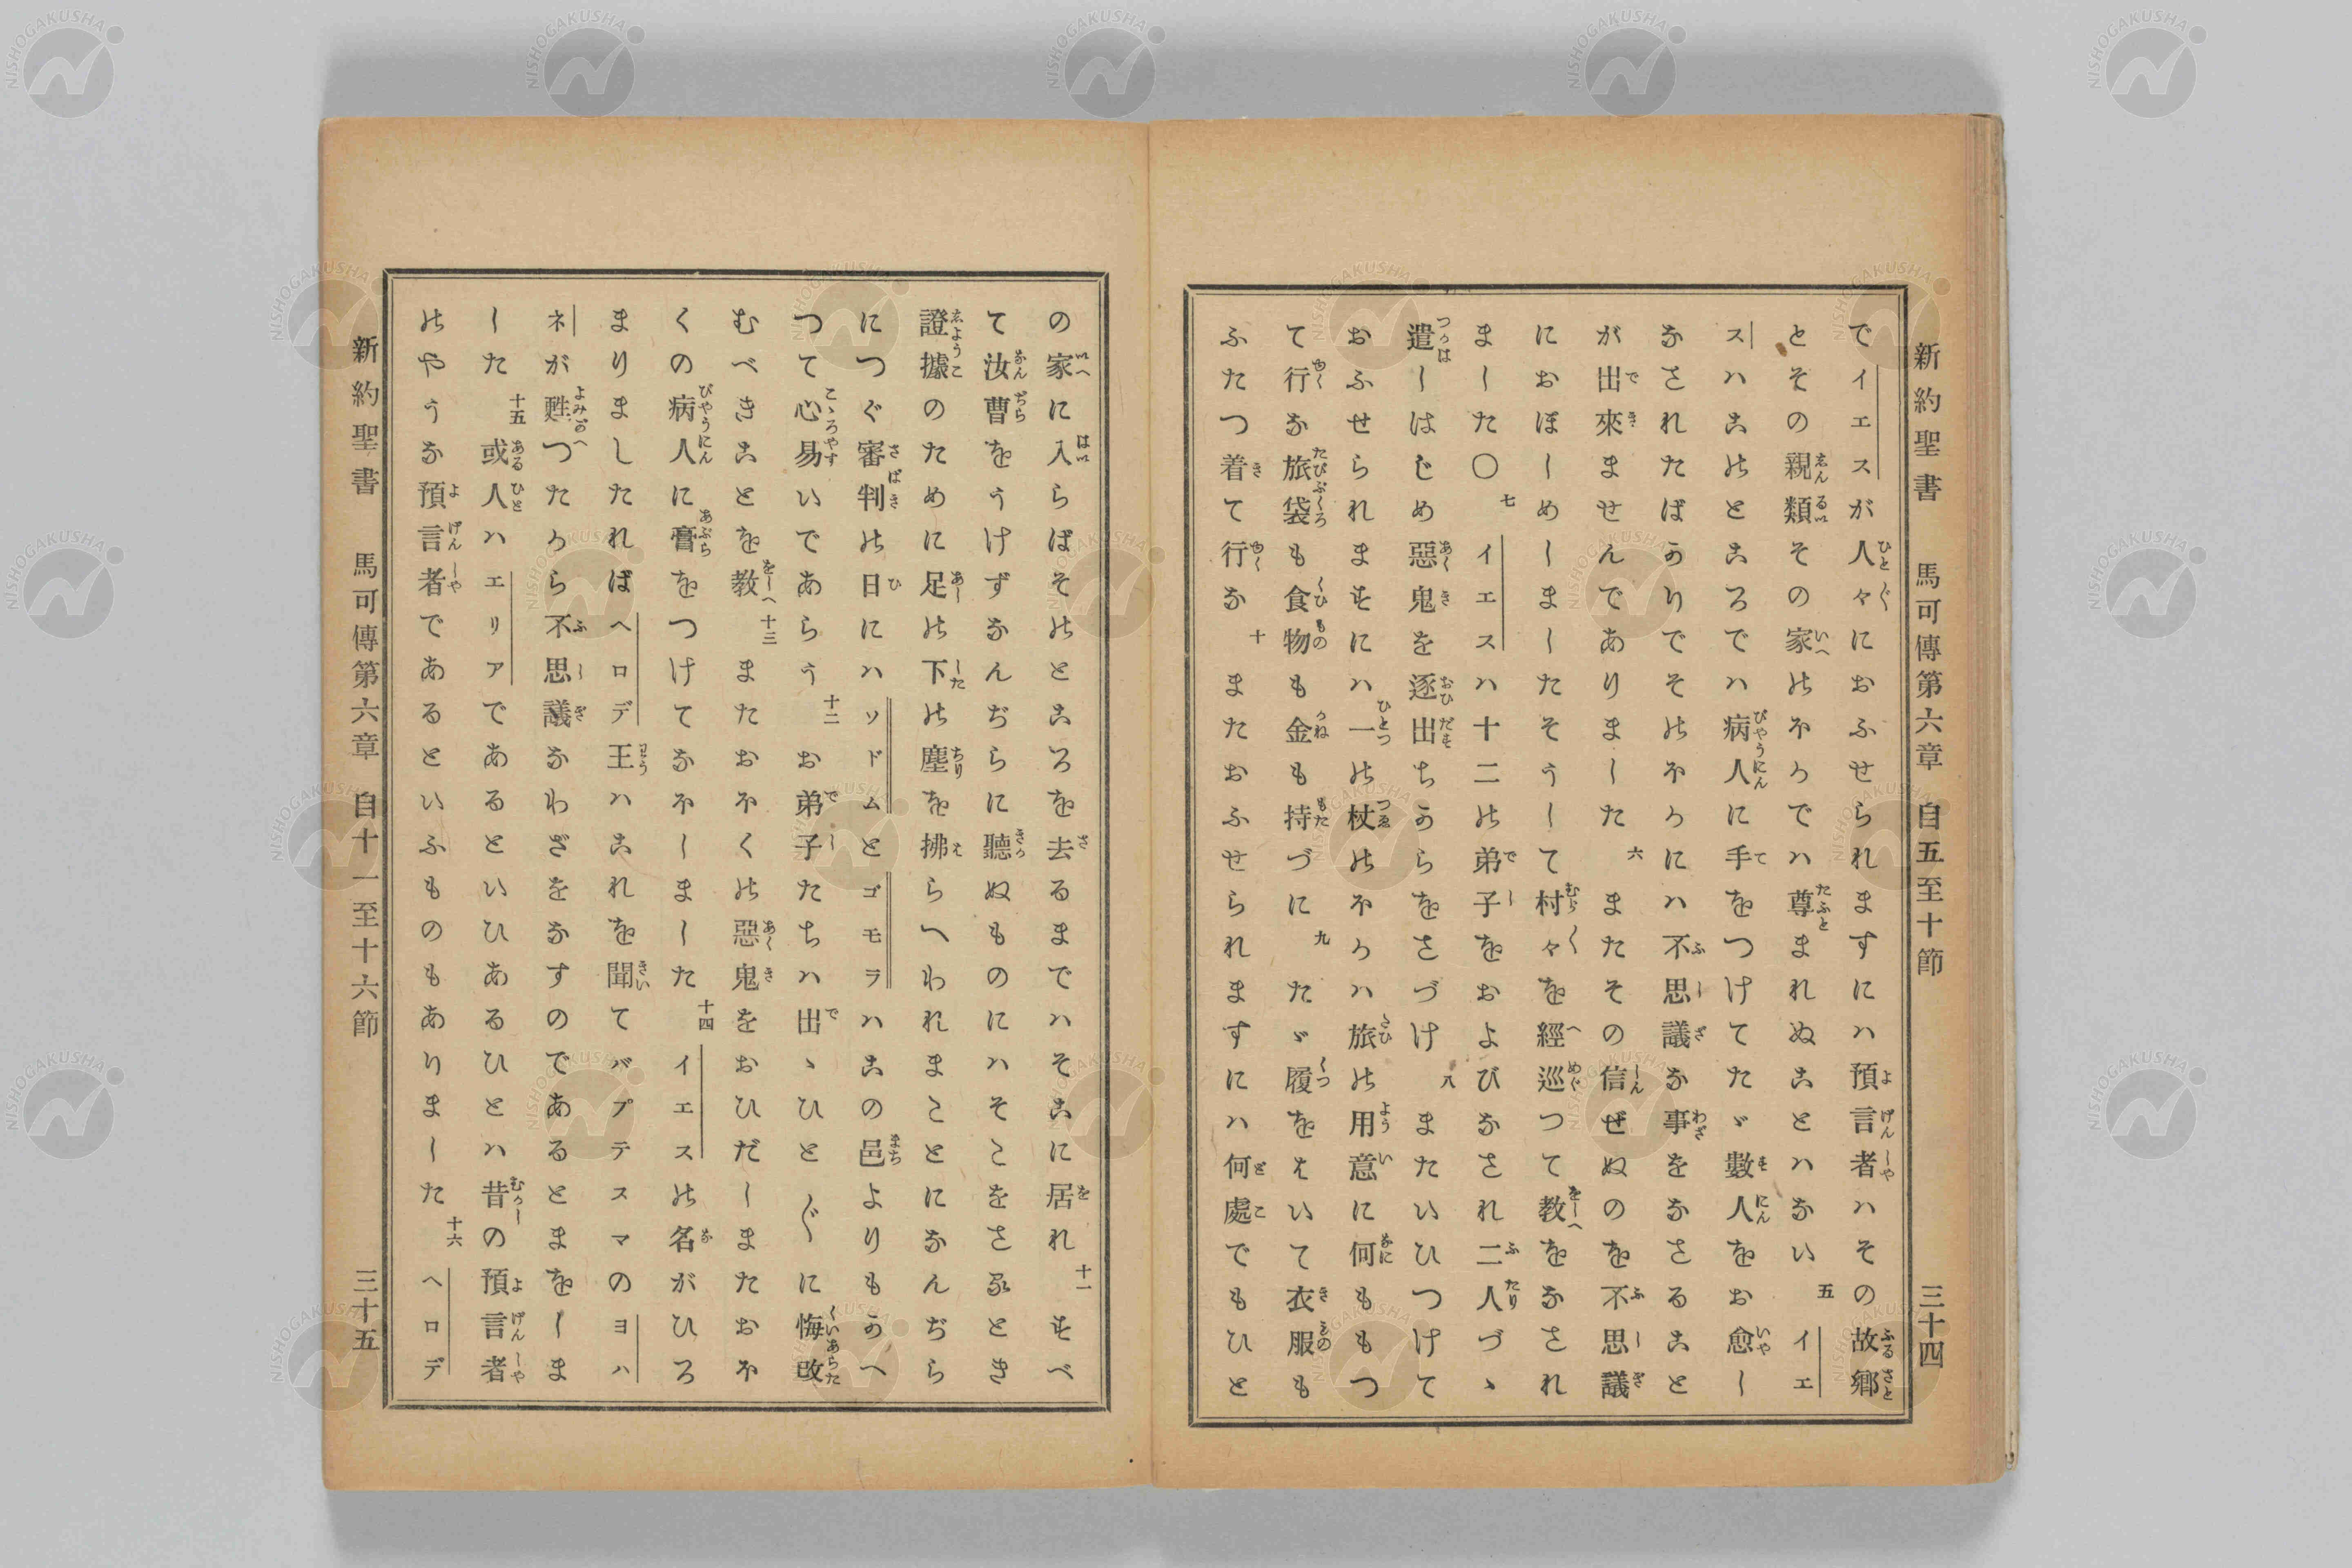 新約聖書 馬可傳第六章 自五至十節 三十四
でイエスが人々におふせられますにハ預言者ハその故郷
とその親類その家のほかでハ尊まれぬことハない 五 イエ
スハこのところでハ病人に手をつけてたゞ數人をお愈し
なされたばかりでそのほかにハ不思議な事をなさること
が出來ませんでありました 六 またその信ぜぬのを不思議
におほしめしましたそうして村々を經巡つて教をなされ
ました〇 七 イエスハ十二の弟子をおよびなされ二人づゝ
遣しはじめ惡鬼を逐出すちからをさづけ 八 またいひつけて
おふせられますにハ一の杖のほかハ旅の用意に何ももつ
て行な旅袋も食物も金も持づに 九 たゞ履をはいて衣服も
ふたつ着て行な 十 またおふせられますにハ何處でもひと
新約聖書 馬可傳第六章 自十一至十六節 三十五
の家に入らばそのところを去るまでハそこに居れ 十一 すべ
て汝曹をうけずなんぢらに聽ぬものにハそこをさるとき
證據のために足の下の塵を拂らへわれまことになんぢら
につぐ審判の日にハソドムとゴモラハこの邑よりもかへ
つて心易いであらう 十二 お弟子たちハ出ゝひと〴〵に悔改
むべきことを教 十三 またおほくの惡鬼をおひだしまたおほ
くの病人に膏をつけてなほしました 十四 イエスの名がひろ
まりましたればヘロデ王ハこれを聞てバプテスマのヨハ
ネが甦つたから不思議なわざをなすのであるとまをしま
した 十五 或人ハエリアであるといひあるひとハ昔の預言者
のやうな預言者であるといふものもありました 十六 ヘロデ